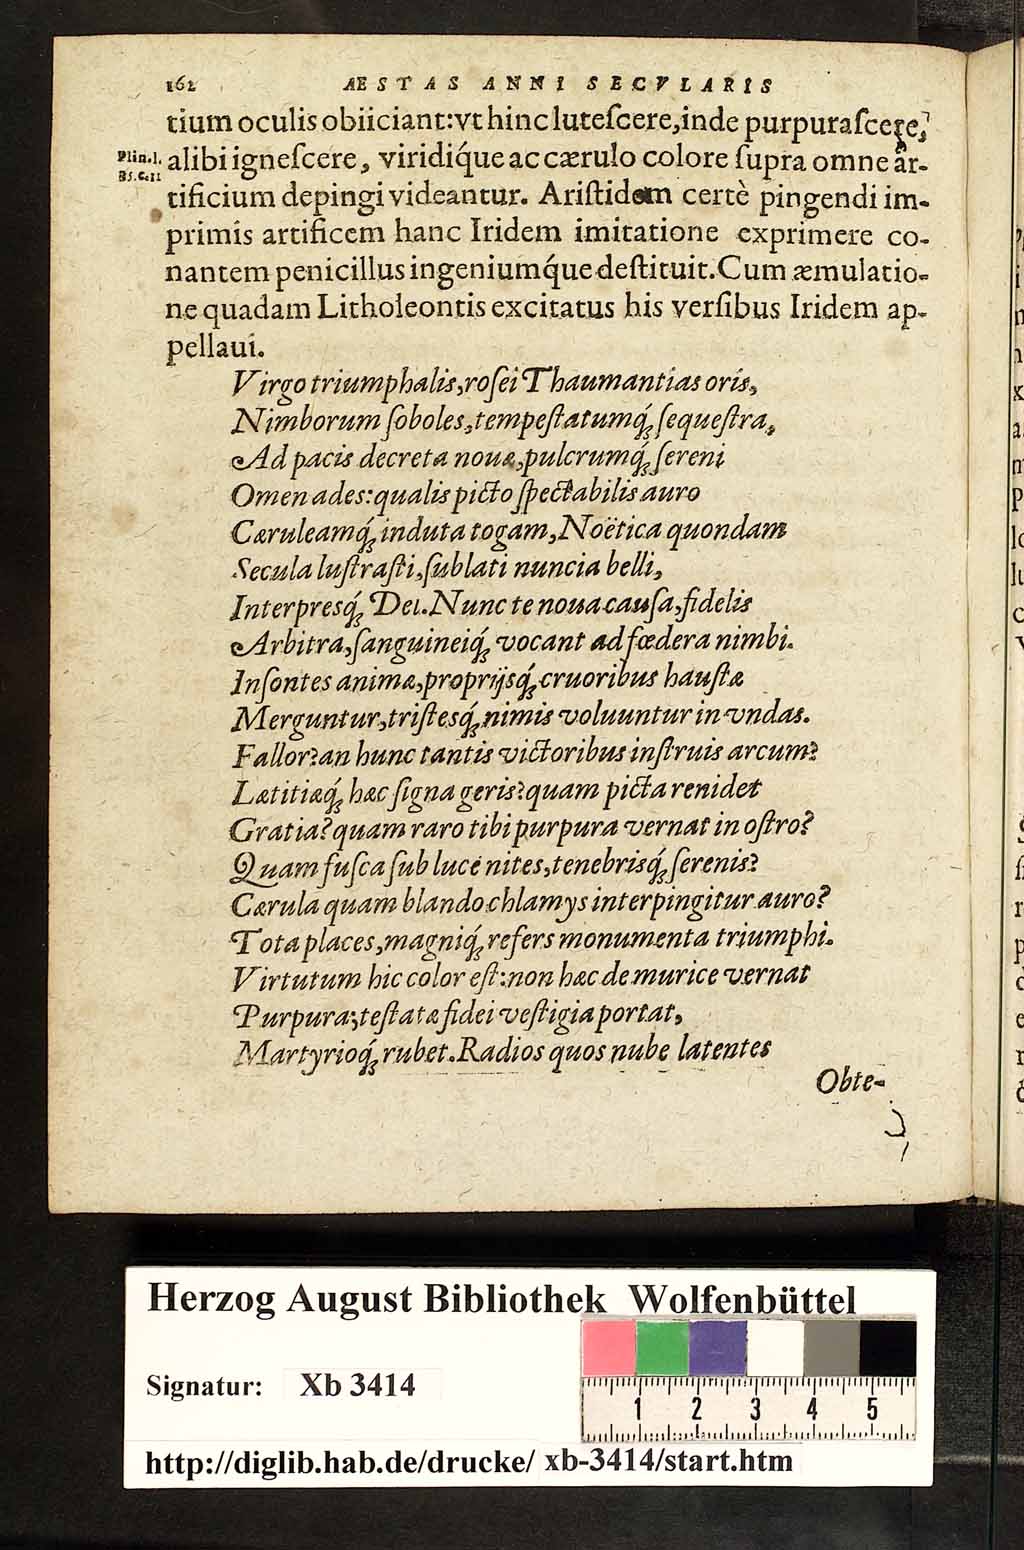 162 ÆSTAS ANNI SECVLARIS
tium oculis obiiciant: vt hinc lutescere, inde purpurascere,
Plin. l.
35. c. 11
alibi ignescere, viridiq́ue ac cærulo colore supra omne ar-
tificium depingi videantur. Aristidem certè pingendi im-
primis artificem hanc Iridem imitatione exprimere co-
nantem penicillus ingeniumq́ue destituit. Cum æmulatio-
ne quadam Litholeontis excitatus his versibus Iridem ap-
pellaui.
Virgo triumphalis, rosei Thaumantias oris,
Nimborum soboles, tempestatumq́; sequestra,
Ad pacis decreta nouæ, pulcrumq́; sereni
Omen ades: qualis picto spectabilis auro
Cæruleamq́; induta togam, Noëtica quondam
Secula lustrasti, sublati nuncia belli,
Interpresq́; Dei. Nunc te noua causa, fidelis
Arbitra, sanguineiq́; vocant ad fœdera nimbi.
Insontes animæ, proprijsq́; cruoribus haustæ
Merguntur, tristesq́; nimis voluuntur in vndas.
Fallor? an hunc tantis victoribus instruis arcum?
Lætitiæq́; hæc signa geris? quam picta renidet
Gratia? quam raro tibi purpura vernat in ostro?
Quam fusca sub luce nites, tenebrisq́; serenis?
Cærula quam blando chlamys interpingitur auro?
Tota places, magniq́; refers monumenta triumphi.
Virtutum hic color est: non hæc de murice vernat
Purpura; testatæ fidei vestigia portat,
Martyrioq́; rubet. Radios quos nube latentes
Obte-
Herzog August Bibliothek Wolfenbüttel
Signatur: Xb 3414
1 2 3 4 5
http://diglib.hab.de/drucke/ xb-3414/start.htm